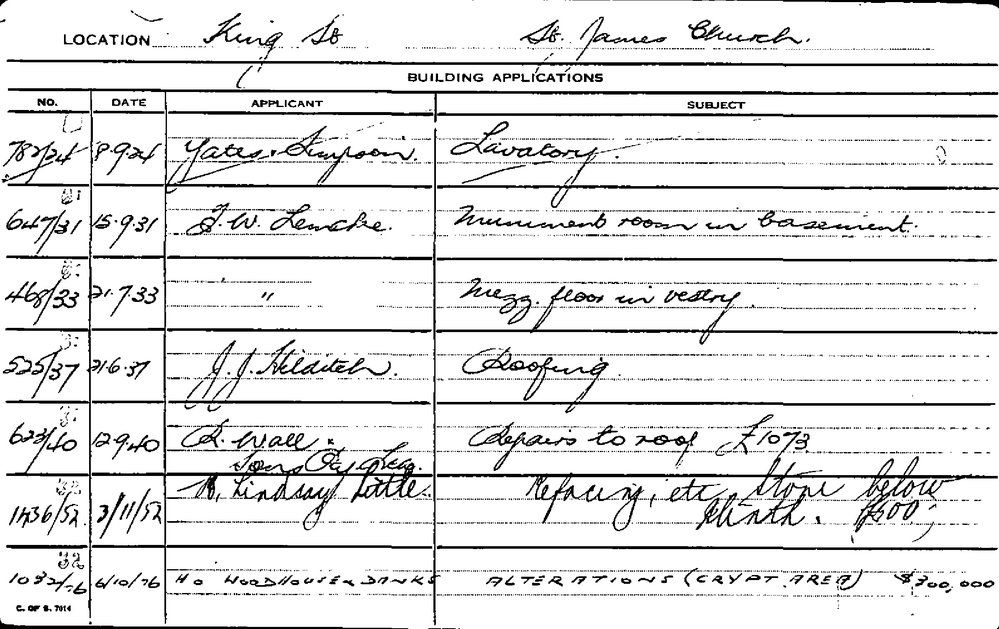 LOCATION King St St. James Church.
BUILDING APPLICATIONS
NO. DATE APPLICANT SUBJECT
782/24 8-9-24 Yates & Simpson. Lavatory.
647/31 15.9.31 F.W. Lemcke. Muniment room in basement.
468/33 21.7.33 " Mezz. floor in vestry.
525/37 21.6.37 J.J. Hilditch. Roofing.
623/40 12.9.40 R. Wall & Repairs to roof £1073
Sons Pty
N. Lindsay Little. Refacing, etc, Stone below
1436/52 3/11/52 Plinth.
1032/76 6/10/76 H O WOODHOUSE & DANKS ALTERATIONS (CRYPT AREA) $300,000
C. OF S. 7014